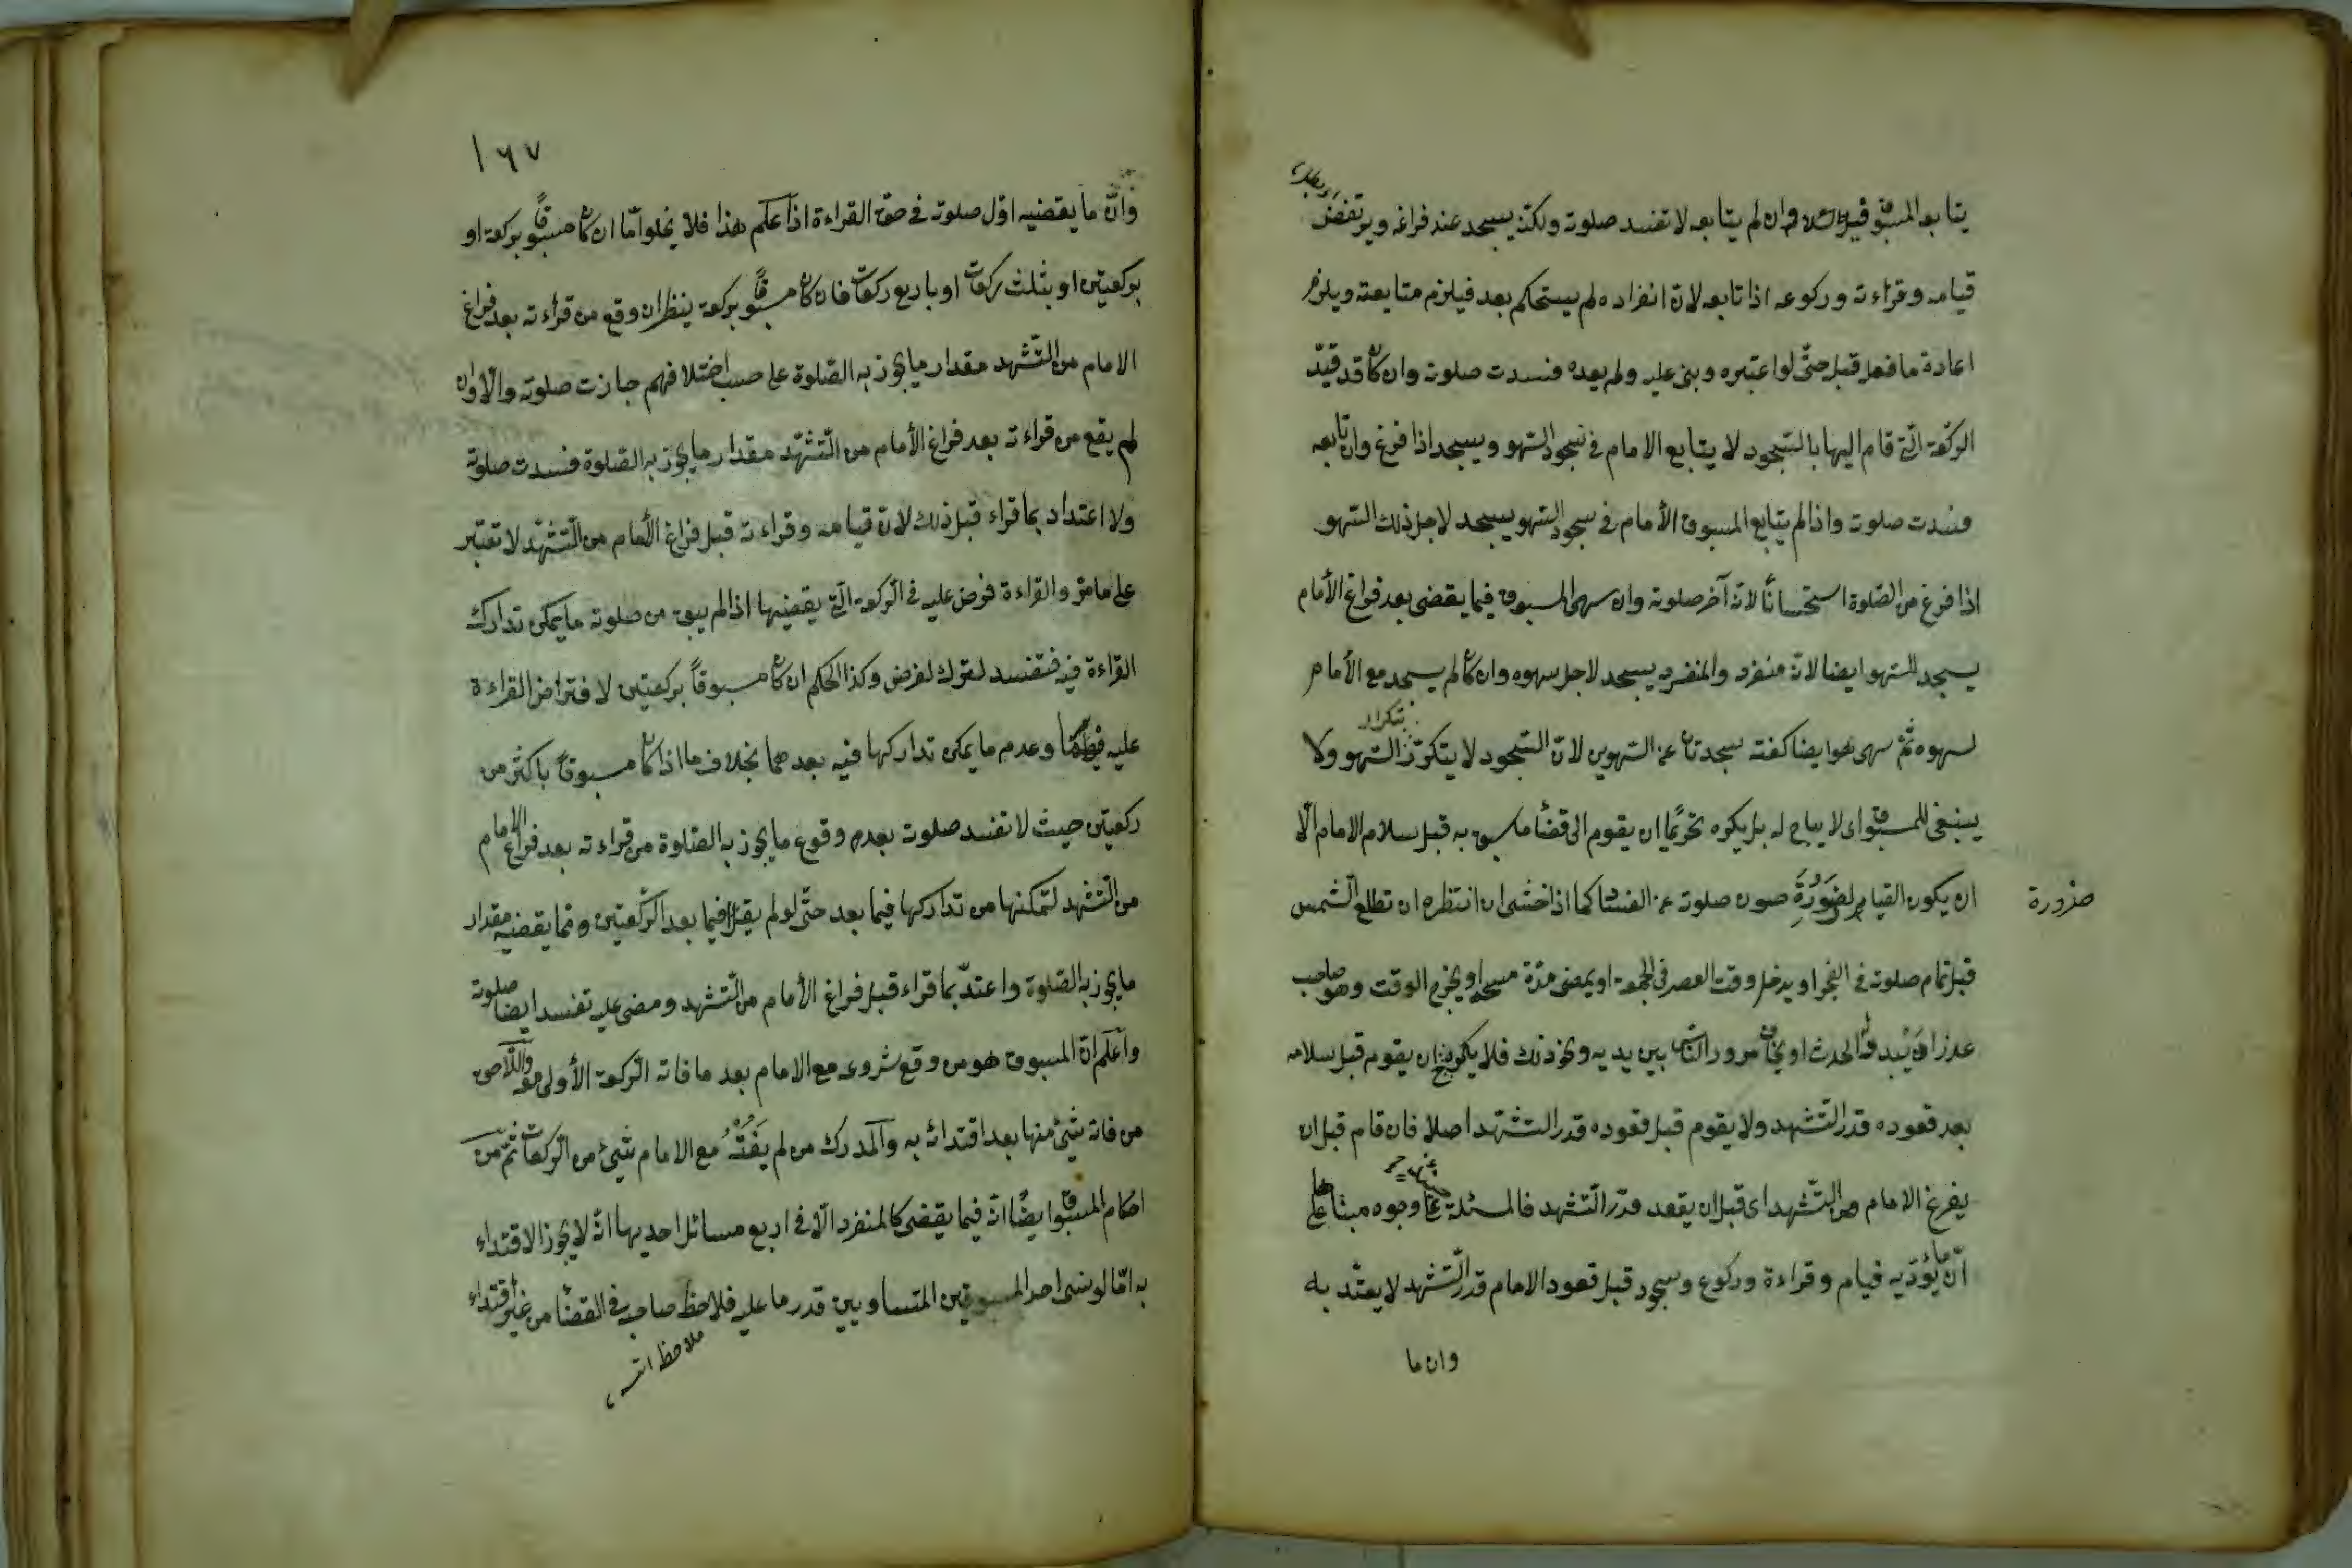 يتابعه المسبوق وان لم يتابعه لا تفسد صلوته ولكنه يسجد عند فراغه ويرتفض
قيامه وقراءته وركوعه اذا تابعه لان انفراده لم يستحكم بعد فيلزم متابعته ويلزم
اعادة ما فعل قبل حتّى لو اعتبره وبنى عليه ولم يعده فسدت صلوته وان كان قد قيّد
الركعة الّتى قام اليها بالسّجود لا يتابع الامام فى سجود السّهو ويسجد اذا فرغ وان تابعه
فسدت صلوته واذا لم يتابع المسبوق الأمام فى سجود السّهو يسجد لاجل ذلك السّهو
اذا فرغ من الصّلوة استحسانًا لانّه آخر صلوته وان سهى المسبوق فيما يقضى بعد فراغ الأمام
يسجد للسّهو ايضا لانّه منفرد والمنفرد يسجد لاجل سهوه وان كان لم يسجد مع الأمام
لسهوه ثمّ سهى هو ايضا كفته سجدتان عن السّهوين لانّ السّجود لا يتكرّر السّهو ولا
بتكرار
ينبغى للمسبوق اى لا يباح له بل يكره تحريمًا ان يقوم الى قضأ ما سبق به قبل سلام الامام الّا
ان يكون القيام لضرورة صون صلوته عن الفساد كما اذا خشى ان انتظره ان تطلع الشّمس
ضرورة
قبل تمام صلوته فى الفجر او يدخل وقت العصر فى الجمعة او يمضى مدّة مسحه او يخرج الوقت وهو صاحب
عذر او يبدره الحدث او يخاف مرور النّاس بين يديه ونحو ذلك فلا يكره ان يقوم قبل سلامه
بعد قعوده قدر التّشهد ولا يقوم قبل قعوده قدر التّشهد اصلا فان قام قبل ان
يفرغ الامام من التّشهد اى قبل ان يقعد قدر التّشهد فالمسئلة على وجوه مبناها على
انّ ما يؤدّيه قيام وقراءة وركوع وسجود قبل قعود الامام قدر التّشهد لا يعتّد به
وان ما
١٦٧
وانّ ما يقضيه اوّل صلوته فى حق القراءة اذا علم هذا فلا يخلوا امّا ان كان مسبوقًا بركعة او
بركعتين او بثلث ركعات او باربع ركعات فان كان مسبوقًا بركعة ينظر ان وقع من قراءته بعد فراغ
الامام من التّشهد مقدار ما يجوز به الصّلوة على حسب اختلافهم جازت صلوته والّا وان
لم يقع من قراءته بعد فراغ الأمام من التّشهّد مقدار ما يجوز به الصّلوة فسدت صلوته
ولا اعتداد بما قراء قبل ذلك لانّ قيامه وقراءته قبل فراغ الأمام من التّشهّد لا تعتبر
على ما مرّ والقراءة فرض عليه فى الرّكعة الّتى يقضيها اذا لم يبق من صلوته ما يمكن تدارك
القراءة فيه فتفسد لترك لفرض وكذا الحكم ان كان مسبوقاً بركعتين لافتراض القراءة
عليه فيهما وعدم ما يمكن تداركها فيه بعدهما بخلاف ما اذا كان مسبوقًا باكثر من
ركعتين حيث لا تفسد صلوته بعدم وقوع ما يجوز به الصّلوة من قراءته بعد فراغ الامام
من التّشهد لتمكّنها من تداركها فيما بعد حتّى لو لم يقرأ فيما بعد الرّكعتين ممّا يقضيه مقدار
ما يجوز به الصّلوة واعتدّ بما قراء قبل فراغ الأمام من التّشهد ومضى عليه تفسد ايضا صلوته
واعلم انّ المسبوق هو من وقع شروعه مع الامام بعد ما فاته الرّكعة الأولى معه واللّاحق
من فاته شىء منها بعد اقتدائه به والمدرك من لم يفته مع الامام شىء من الرّكعات ثمّ من
احكام المسبوق ايضًا انّه فيما يقضى كالمنفرد الّا فى اربع مسائل احديها انّه لا يجوز الاقتداء
به امّا لو نسى احد المسبوقين المتساويين قدر ما عليه فلاحظ صاحبه فى القضأ من غير اقتداء
ملاحظاته